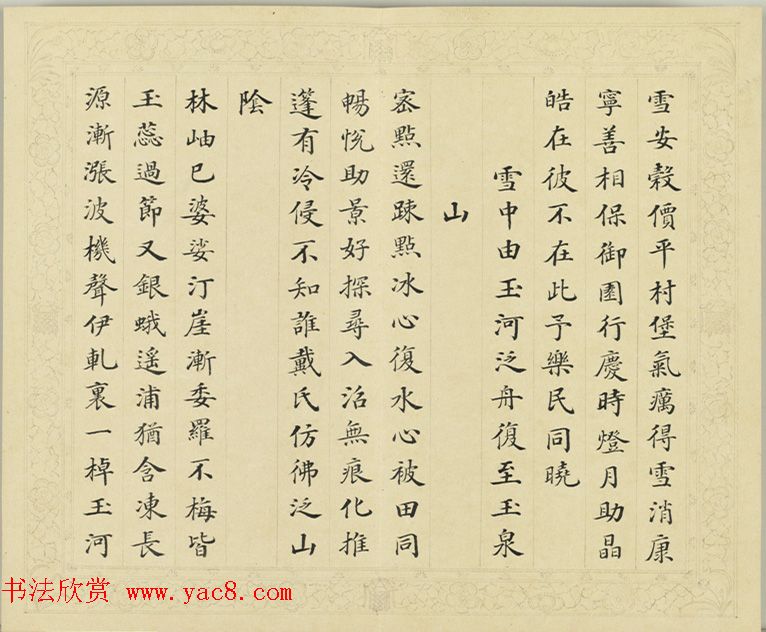 雪安穀價平村堡氣癘得雪消康
寧善相保御園行慶時燈月助晶
皓在彼不在此予樂民同曉
雪中由玉河泛舟復至玉泉
山
密點還踈點冰心復水心被田同
暢悅助景好探尋入沼無痕化推
蓬有冷侵不知誰戴氏仿彿泛山
陰
林岫已婆娑汀崖漸委羅不梅皆
玉蕊過節又銀蛾遙浦猶含凍長
源漸漲波機聲伊軋裏一棹玉河
书法欣赏 www.yac8.com